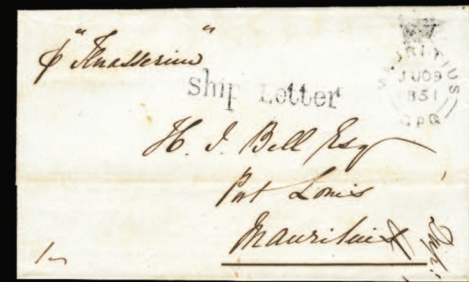 p "Tenasserim"
Ship Letter
MAURITIUS
JU 09
1851
GPO
H. J. Bell Esq
Port Louis
Mauritius